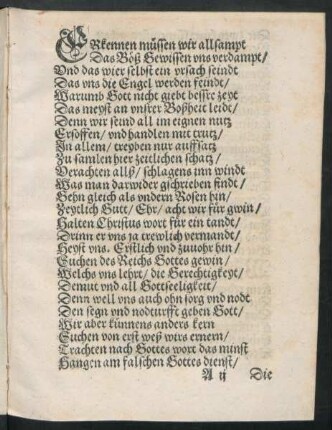 ERkennen müssen wir allsampt
Das Böß Gewissen vns verdampt/
Vnd das wier selbst ein vrsach seindt
Das vns die Engel werden feindt/
Warumb Gott nicht giebt bessre zeyt
Das meyst an vnsrer Boßheit leidt/
Denn wir seind all im eignen nutz
Ersoffen/ vnd handlen mit trutz/
In allem/ treyben nur auffsatz
Zu samlen hier zeitlichen schatz/
Verachten allß/ schlagens inn windt
Was man darwider gschrieben findt/
Gehn gleich als vndern Rosen hin/
Zeytlich Gutt/ Ehr/ acht wir für gwin/
Halten Christus wort für ein tandt/
Drinn er vns za trewlich vermandt/
Heyst vns. Erstlich vnd zuuohr hin/
Suchen des Reichs Gottes gewin/
Welchs vns lehrt/ die Gerechtigkeyt/
Demut vnd all Gottseeligkeit/
Denn well vns auch ohn sorg vnd nodt
Den segn vnd nodturfft geben Gott/
Wir aber künnens anders kern
Suchen von erst weß wirs ernern/
Trachten nach Gottes wort das minst
Hangen am falschen Gottes dienst/
A ij Die